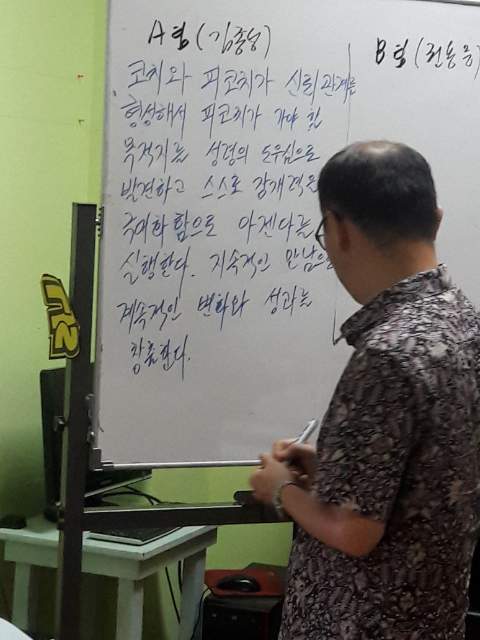 A팀 (김종성)
B팀 (전용웅)
코치와 피코치가 신뢰관계를
형성해서 피코치가 가야 할
목적지를 성령의 도우심으로
발견하고 스스로 잠재력을
극대화 함으로 아젠다를
실행한다. 지속적인 만남으로
계속적인 변화와 성과를
창출한다.